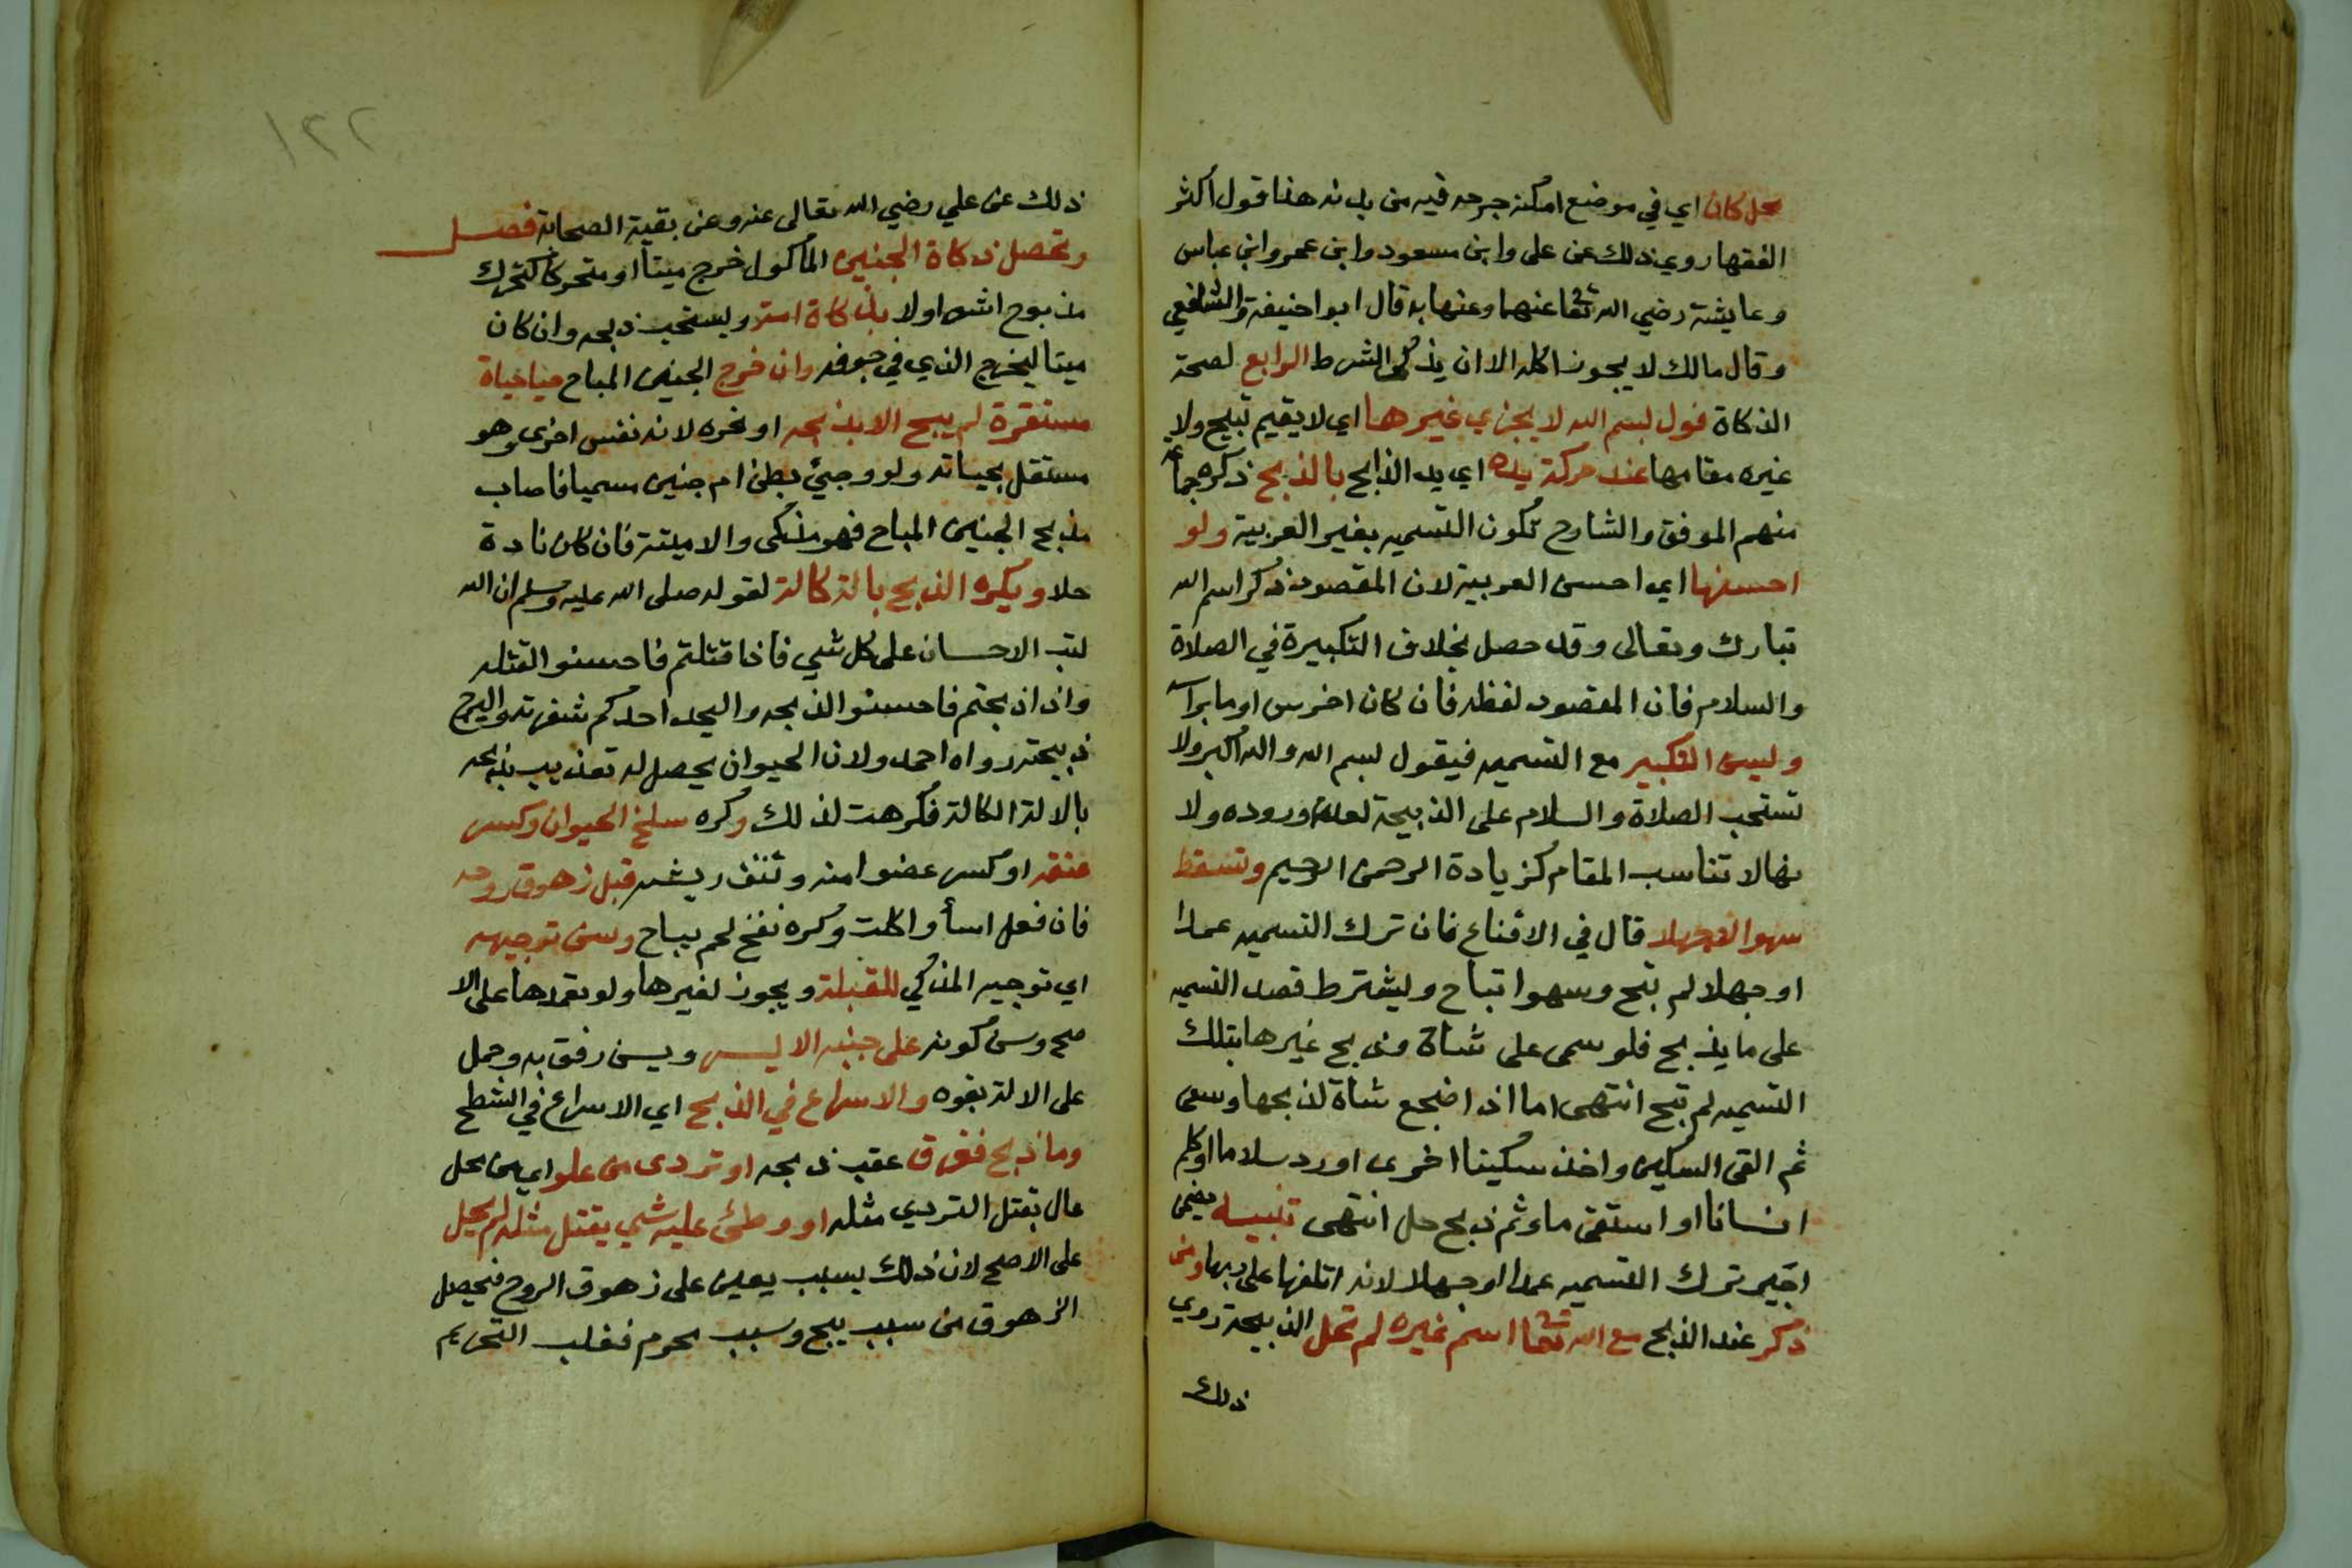 محل كان اي في موضع امكنه جرحه فيه من بدنه هذا قول اكثر
الفقها روي ذلك عن علي وابن مسعود وابن عمر وابن عباس
وعايشة رضي الله تعا عنهما وعنها به قال ابو احنيفة والشافعي
وقال مالك لا يجوز اكله الا ان يذكى الشرط الرابع لصحة
الذكاة قول بسم الله لا يجزي غيرها اي لا يقيم تبيح ولا
غيره مقامها عند حركة يده اي يد الذابح بالذبح ذكره جماعة
منهم الموفق والشارح تكون التسميه بغير العربية ولو
احسنها اي احسن العربية لان المقصود ذكر اسم الله
تبارك وتعالى وقد حصل بخلاف التكبيرة في الصلاة
والسلام فان المقصود لفظه فان كان اخرس اوما برأسه
وليسن التكبير مع التسميه فيقول بسم الله والله اكبر ولا
تستحب الصلاة والسلام على الذبيحة لعدم وروده ولا
نها لا تناسب المقام كزيادة الرحمن الرحيم وتسقط
سهوا لا جهلا قال في الاقناع فان ترك التسميه عمدا
او جهلا لم تبح وسهوا تباح وليشترط قصد التسميه
على ما يذبح فلو سمى على شاة وذبح غيرها بتلك
التسميه لم تبح انتهى اما اذا اضجع شاة لذبحها وسمى
ثم القى السكين واخذ سكينا اخرى او رد سلاما او كلم
انسانا او استقى ماء ثم ذبح حل انتهى تنبيه يضمن
اجير ترك التسميه عمدا او جهلا لانه اتلفها على ربها ومن
ذكر عند الذبح مع الله تعا اسم غيره لم تحل الذبيحة روي
ذلك
١٢٢
ذلك عن علي رضي الله تعالى عنه وعن بقية الصحابة فصل
وتحصل ذكاة الجنين المأكول خرج ميتا او متحركا كتحرك
مذبوح اشعر اولا بذكاة امه ويستحب ذبحه وان كان
ميتا ليخرج الذي في جوفه وان خرج الجنين المباح حيا حياة
مستقرة لم يبح الا بذبحه او نحره لانه نفس اخرى وهو
مستقل بحياته ولو وجئ بطن ام جنين مسميا فاصاب
مذبح الجنين المباح فهو مذكى والا ميتة فان كان نادة
حلا ويكره الذبح بالة كالة لقوله صلى الله عليه وسلم ان الله
كتب الاحسان على كل شي فاذا قتلتم فاحسنوا القتله
واذا ذبحتم فاحسنوا الذبحه واليحد احدكم شفرته واليرح
ذبيحته رواه احمد ولان الحيوان يحصل له تعذيب بذبحه
بالالة الكالة فكرهت لذلك وكره سلخ الحيوان وكسر
عنقه او كسر عضوا منه ونتف ريشه قبل زهوق روحه
فان فعل اسأ واكلت وكره نفخ لحم يباح وسن توجيهه
اي توجيه المذكي للقبلة ويجوز لغيرها ولو تعمدها على الا
صح وسن كونه على جنبه الايسر ويسن رفق به وحمل
على الالة بقوه والاسراع في الذبح اي الاسراع في الشطح
وما ذبح فغرق عقب ذبحه او تردى من علو اي من محل
عال بقتل التردي مثله او وطئ عليه شي يقتل مثله لم يحل
على الاصح لان ذلك بسبب يعين على زهوق الروح فيحصل
الزهوق من سبب يبيح وسبب محرم فغلب التحريم